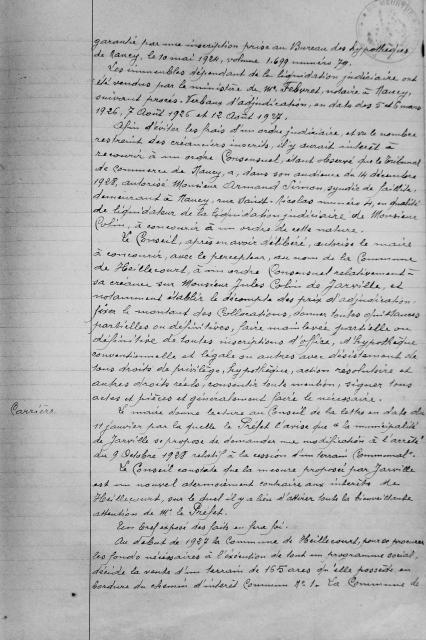 garantie par une inscription prise au Bureau des hypothèques
de Nancy, le 10 mai 1924, volume 1.699 numéro 79.
Les immeubles dépendant de la liquidation judiciaire ont
été vendus par le ministère de Me Febvret, notaire à Nancy,
suivant procès-verbaux d'adjudication, en date des 5 et 6 mars
1926, 7 Août 1926 et 12 Août 1927.
Afin d'éviter les frais d'un ordre judiciaire, et vu le nombre
restreint des créanciers inscrits, il y aurait intérêt à
recourir à un ordre Consensuel, étant observé que le tribunal
de Commerce de Nancy, a, dans son audience du 14 décembre
1928, autorisé Monsieur Armand Simon, syndic de faillite
demeurant à Nancy, rue Saint-Nicolas numéro 4, en qualité
de liquidateur de la liquidation judiciaire de Monsieur
Colin, à concourir à un ordre de cette nature.
Le Conseil, après en avoir délibéré, autorise le maire
à concourir, avec le percepteur, au nom de la Commune
de Heillecourt, à un ordre Consensuel relativement à
sa créance sur Monsieur Jules Colin de Jarville, et
notamment établir le décompte des prix d'adjudication
fixer le montant des Collocations, donner toutes quittances
partielles ou définitives, faire mainlevée partielle ou
définitive de toutes inscriptions d'office, d'hypothèque
conventionnelle et légale ou autres avec désistement de
tous droits de privilège, hypothèque, action résolutoire et
autres droits réels, consentir toute mention, signer tous
actes et pièces et généralement faire le nécessaire.
Carrière
Le maire donne lecture au Conseil de la lettre en date du
11 janvier par laquelle le Préfet l'avise que "la municipalité
de Jarville se propose de demander une modification à l'arrêté
du 9 Octobre 1928 relatif à la cession d'un terrain Communal".
Le Conseil constate que la mesure proposée par Jarville
est un nouvel atermoiement contraire aux intérêts de
Heillecourt, sur lequel il y a lieu d'attirer toute la bienveillante
attention de Mr le Préfet.
Un bref exposé des faits en fera foi.
Au début de 1927 la Commune de Heillecourt, pour se procurer
les fonds nécessaires à l'exécution de tout un programme social,
décide la vente d'un terrain de 165 ares qu'elle possède en
bordure du chemin d'intérêt Commun No 1. La Commune de